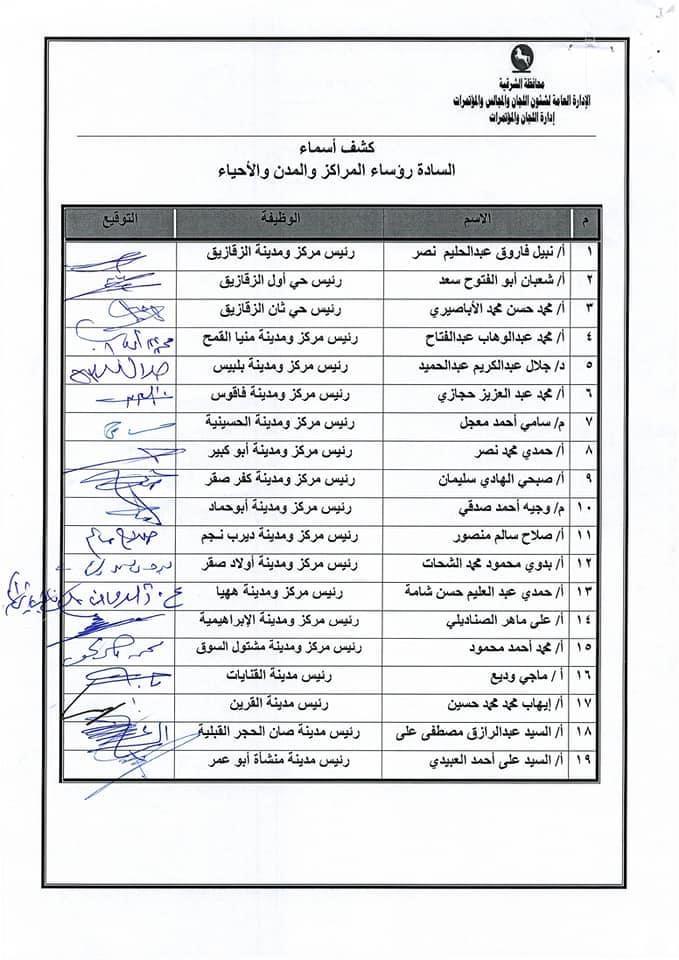 محافظة الشرقية
الإدارة العامة لشئون اللجان والمجالس والمؤتمرات
إدارة اللجان والمؤتمرات
كشف أسماء
السادة رؤساء المراكز والمدن والأحياء
م الاسم الوظيفة التوقيع
١ أ/ نبيل فاروق عبدالحليم نصر رئيس مركز ومدينة الزقازيق
٢ أ/ شعبان أبو الفتوح سعد رئيس حي أول الزقازيق
٣ أ/ محمد حسن محمد الأباصيري رئيس حي ثان الزقازيق
٤ أ/ محمد عبدالوهاب عبدالفتاح رئيس مركز ومدينة منيا القمح
٥ د/ جلال عبدالكريم عبدالحميد رئيس مركز ومدينة بلبيس
٦ أ/ محمد عبد العزيز حجازي رئيس مركز ومدينة فاقوس
٧ م/ سامي أحمد معجل رئيس مركز ومدينة الحسينية
٨ أ/ حمدي محمد نصر رئيس مركز ومدينة أبو كبير
٩ أ/ صبحي الهادي سليمان رئيس مركز ومدينة كفر صقر
١٠ م/ وجيه أحمد صدقي رئيس مركز ومدينة أبوحماد
١١ أ/ صلاح سالم منصور رئيس مركز ومدينة ديرب نجم صلاح سالم
١٢ أ/ بدوي محمود محمد الشحات رئيس مركز ومدينة أولاد صقر
١٣ أ/ حمدي عبد العليم حسن شامة رئيس مركز ومدينة ههيا
١٤ أ/ على ماهر الصناديلي رئيس مركز ومدينة الإبراهيمية
١٥ أ/ محمد أحمد محمود رئيس مركز ومدينة مشتول السوق
١٦ أ/ ماجي وديع رئيس مدينة القنايات
١٧ أ/ إيهاب محمد محمد حسين رئيس مدينة القرين
١٨ أ/ السيد عبدالرازق مصطفى على رئيس مدينة صان الحجر القبلية
١٩ أ/ السيد على أحمد العبيدي رئيس مدينة منشأة أبو عمر